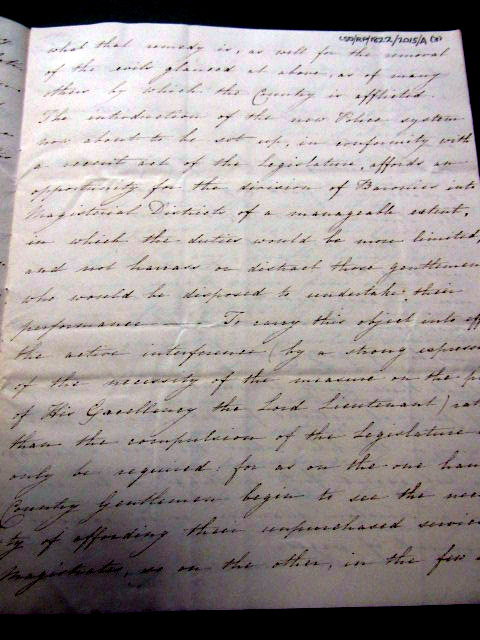 CSO/RP/1822/2015/A (3)
what that remedy is, as well for the removal
of the evils glanced at above, as of many
others by which the Country is afflicted.
The introduction of the new Police system
now about to be set up, in conformity with
a recent act of the Legislature, affords an
opportunity for the division of Baronies into
Magisterial Districts of a manageable extent,
in which the duties would be more limited,
and not harrass or distract those gentlemen
who would be disposed to undertake their
performance — To carry this object into eff
the active interference (by a strong express
of the necessity of the measure on the p
of His Excellency the Lord Lieutenant) rat
than the compulsion of the Legislature
only be required: for as on the one han
Country Gentlemen begin to see the nec
ty of affording their unpurchased servic
Magistrates, so on the other, in the few